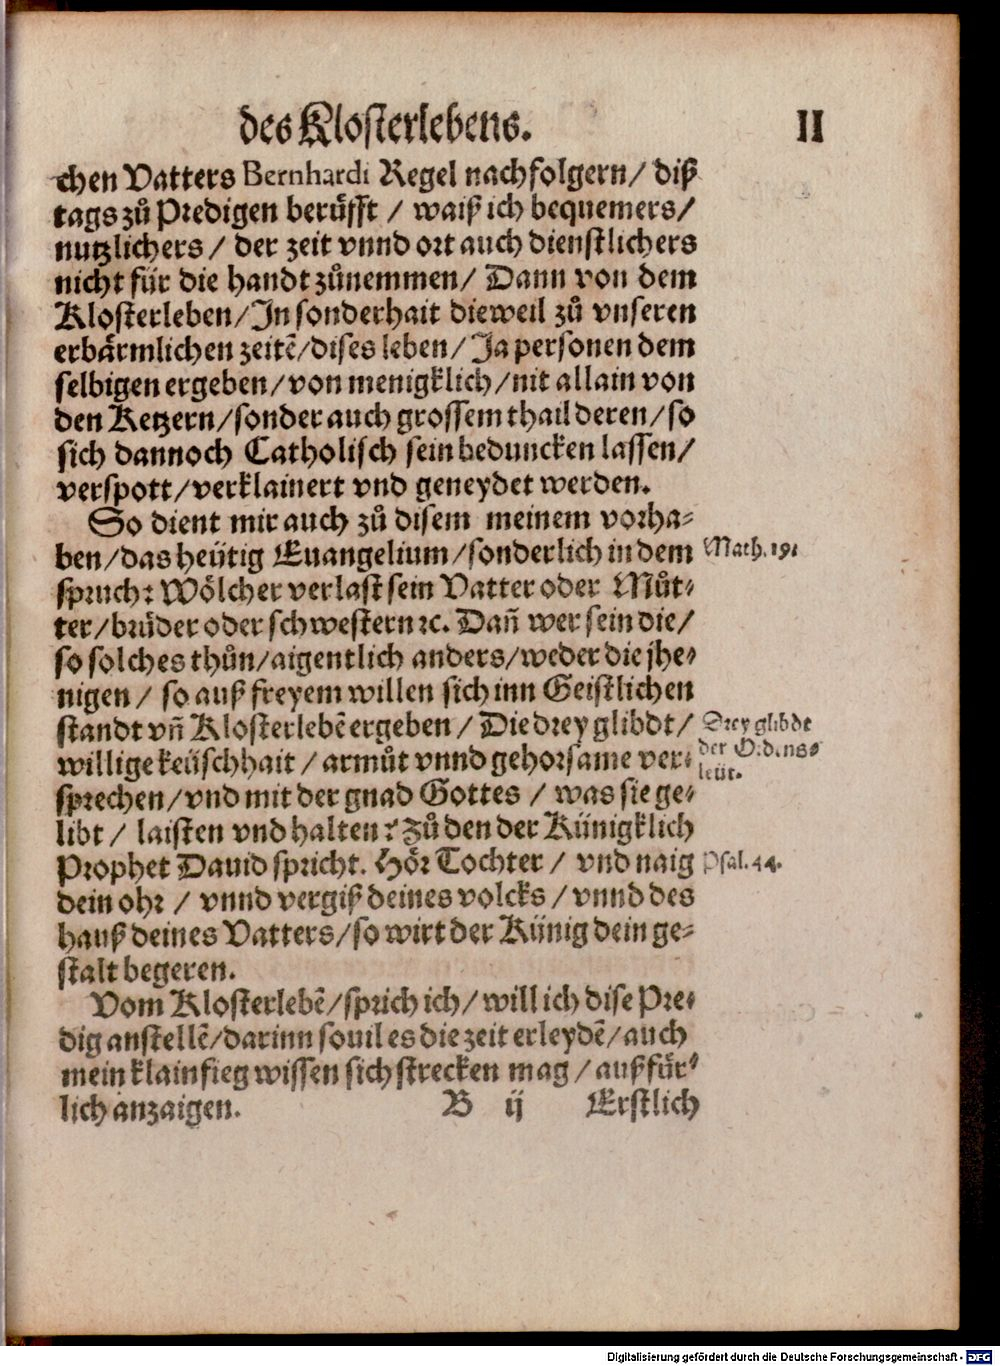 des Klosterlebens. II
chen Vatters Bernhardi Regel nachfolgern / diß
tags zů Predigen berůfft / waiß ich bequemers /
nutzlichers / der zeit vnnd ort auch dienstlichers
nicht für die handt zůnemmen / Dann von dem
Klosterleben / In sonderhait dieweil zů vnseren
erbärmlichen zeitẽ / dises leben / Ja personen dem
selbigen ergeben / von menigklich / nit allain von
den Ketzern / sonder auch grossem thail deren / so
sich dannoch Catholisch sein beduncken lassen /
verspott / verklainert vnd geneydet werden.
So dient mir auch zů disem meinem vorha⸗
ben / das heütig Euangelium / sonderlich in dem
Math. 19.
spruch: Wölcher verlast sein Vatter oder Můt⸗
ter / brüder oder schwestern ꝛc. Dañ wer sein die /
so solches thůn / aigentlich anders / weder die jhe⸗
nigen / so auß freyem willen sich inn Geistlichen
standt vñ Klosterlebẽ ergeben / Die drey glibdt /
Drey glibdt
der Ordens⸗
leüt.
willige keüschhait / armůt vnnd gehorsame ver⸗
sprechen / vnd mit der gnad Gottes / was sie ge⸗
libt / laisten vnd halten? Zů den der Künigklich
Prophet Dauid spricht. Hör Tochter / vnd naig
Psal. 44.
dein ohr / vnnd vergiß deines volcks / vnnd des
hauß deines Vatters / so wirt der Künig dein ge⸗
stalt begeren.
Vom Klosterlebẽ / sprich ich / will ich dise Pre⸗
dig anstellẽ / darinn souil es die zeit erleydẽ / auch
mein klainfieg wissen sich strecken mag / außfür⸗
lich anzaigen.
B ij Erstlich
Digitalisierung gefördert durch die Deutsche Forschungsgemeinschaft - DFG